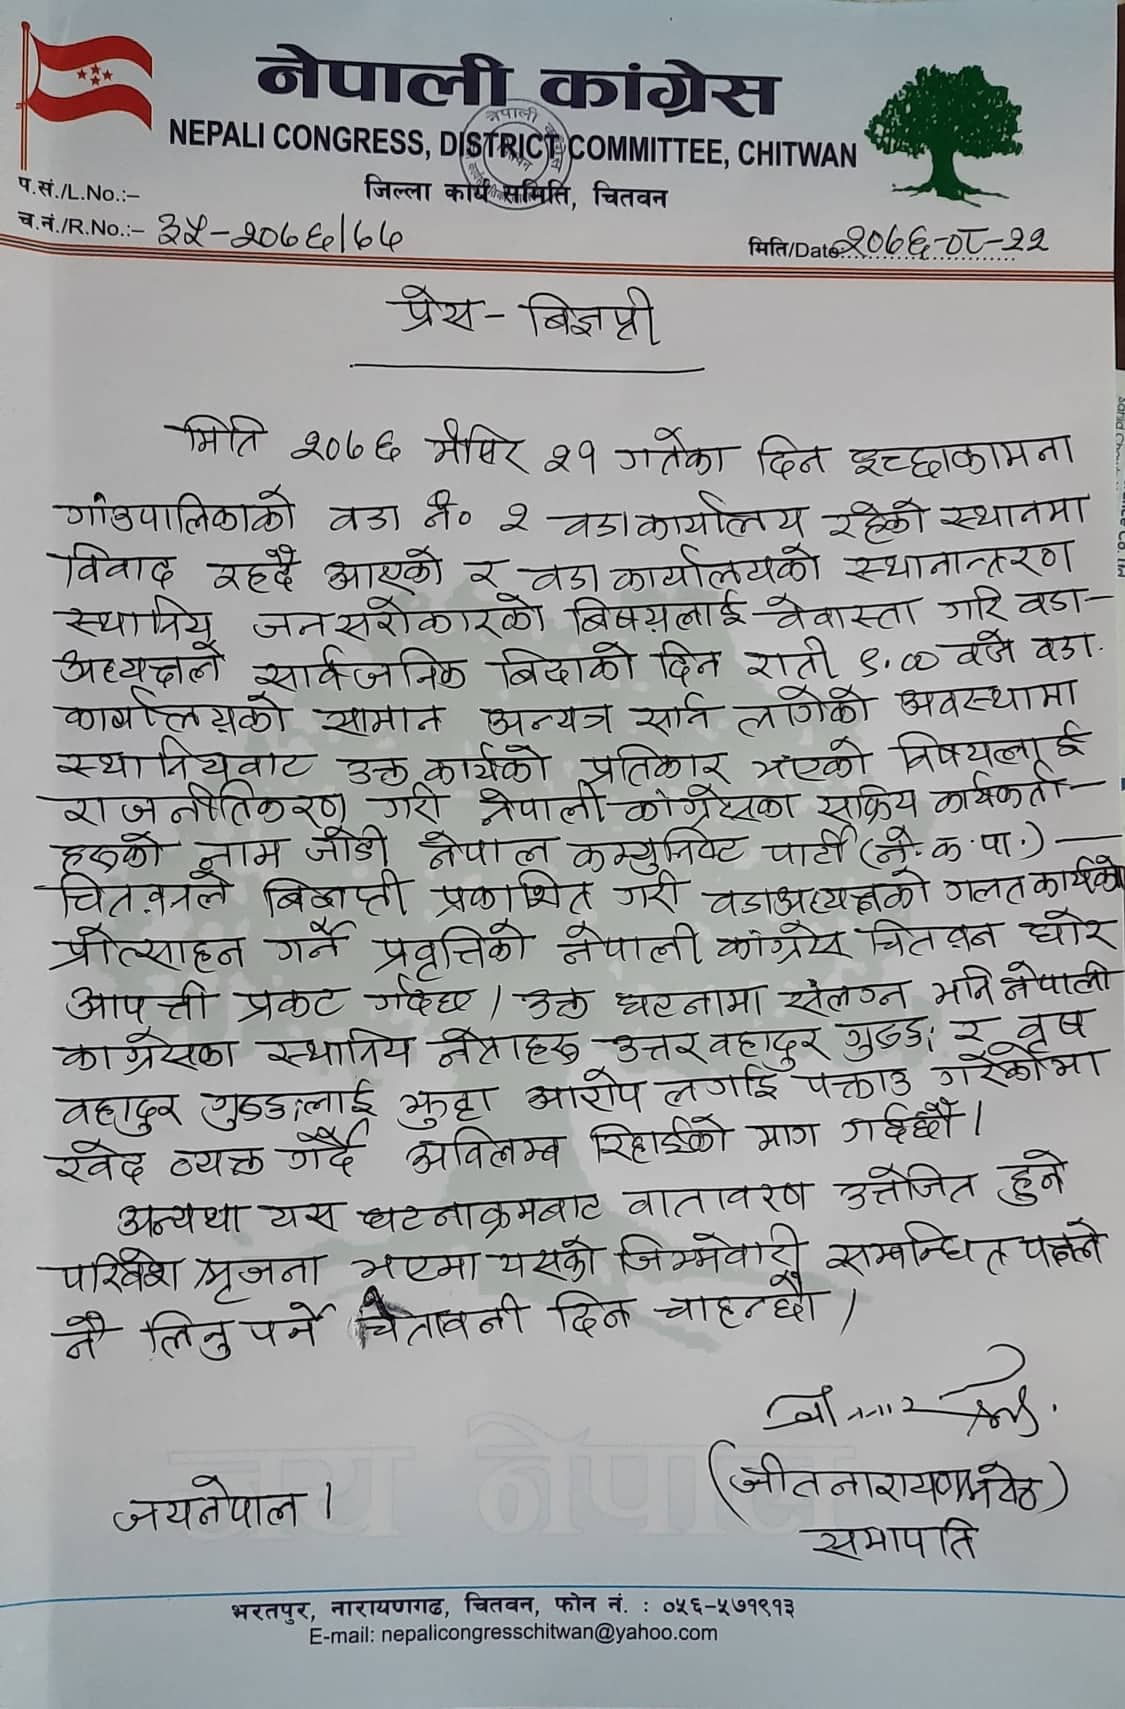 नेपाली कांग्रेस
NEPALI CONGRESS, DISTRICT COMMITTEE, CHITWAN
जिल्ला कार्य समिति, चितवन
प.सं./L.No.:-
च.नं./R.No.:- ३५-२०७६/७७
मिति/Date २०७६-०८-२२
प्रेस - बिज्ञप्ती
मिति २०७६ मंसिर २१ गतेका दिन इच्छाकामना
गांउपालिकाको वडा नं० २ वडा कार्यालय रहेको स्थानमा
विवाद रहदै आएको र वडा कार्यालयको स्थानान्तरण
स्थानिय जनसरोकारको बिषयलाई वेवास्ता गरि वडा-
अध्यक्षले सार्वजनिक बिदाको दिन राती ९.०० वजे वडा
कार्यालयको सामान अन्यत्र सार्न लागेको अवस्थामा
स्थानियवाट उक्त कार्यको प्रतिकार भएको विषयलाई
राजनीतिकरण गरी नेपाली कांग्रेसका सक्रिय कार्यकर्ता-
हरुको नाम जोडी नेपाल कम्युनिष्ट पार्टी (ने.क.पा.) -
चितवनले बिज्ञप्ती प्रकाशित गरी वडाअध्यक्षको गलत कार्यको
प्रोत्साहन गर्ने प्रवृत्तिको नेपाली कांग्रेस चितवन घोर
आपत्ती प्रकट गर्दछ । उक्त घटनामा संलग्न भनि नेपाली
कांग्रेसका स्थानिय नेताहरु उत्तर वहादुर गुरुङ र वृष
वहादुर गुरुङलाई झुठ्ठा आरोप लगाई पक्राउ गरेकोमा
खेद व्यक्त गर्दै अविलम्ब रिहाईको माग गर्दछौं ।
अन्यथा यस घटनाक्रमबाट वातावरण उत्तेजित हुने
परिवेश सृजना भएमा यसको जिम्मेवारी सम्बन्धित पक्षले
नै लिनु पर्ने चेतावनी दिन चाहन्छौं ।
(जीतनारायण श्रेष्ठ)
सभापति
जयनेपाल ।
जय नेपाल
भरतपुर, नारायणगढ, चितवन, फोन नं. : ०५६-५७१९१३
E-mail: nepalicongresschitwan@yahoo.com